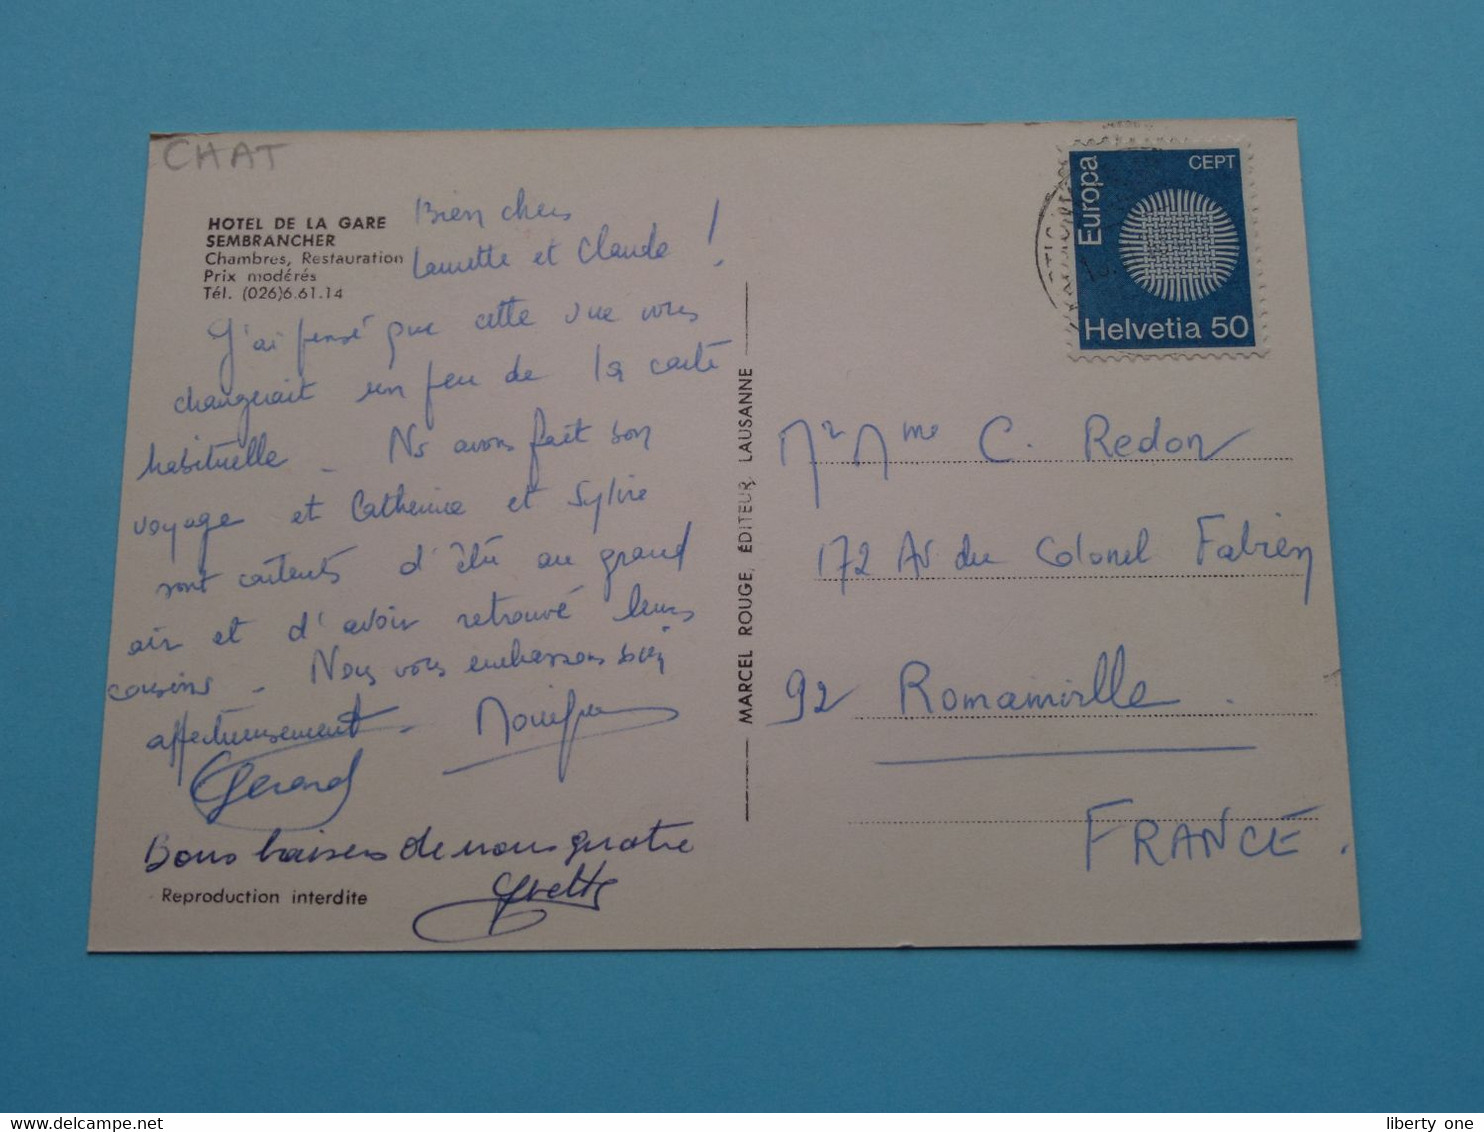 CHAT
HOTEL DE LA GARE
SEMBRANCHER
Chambres, Restauration
Prix modérés
Tél. (026)6.61.14
Bien chers
Laurette et Claude !
J'ai pensé que cette vue vous
changerait un peu de la carte
habituelle _ Ns avons fait bon
voyage et Catherine et Sylvie
sont contents d'être au grand
air et d'avoir retrouvé leurs
cousins _ Nous vous embrassons bien
affectueusement.
Gerard
Bons baisers de nous quatre
Yvette
Reproduction interdite
MARCEL ROUGE, ÉDITEUR, LAUSANNE
Europa
CEPT
Helvetia 50
Mr Mme C. Redon
172 Av du Colonel Fabien
92 Romainville.
FRANCE.
liberty one